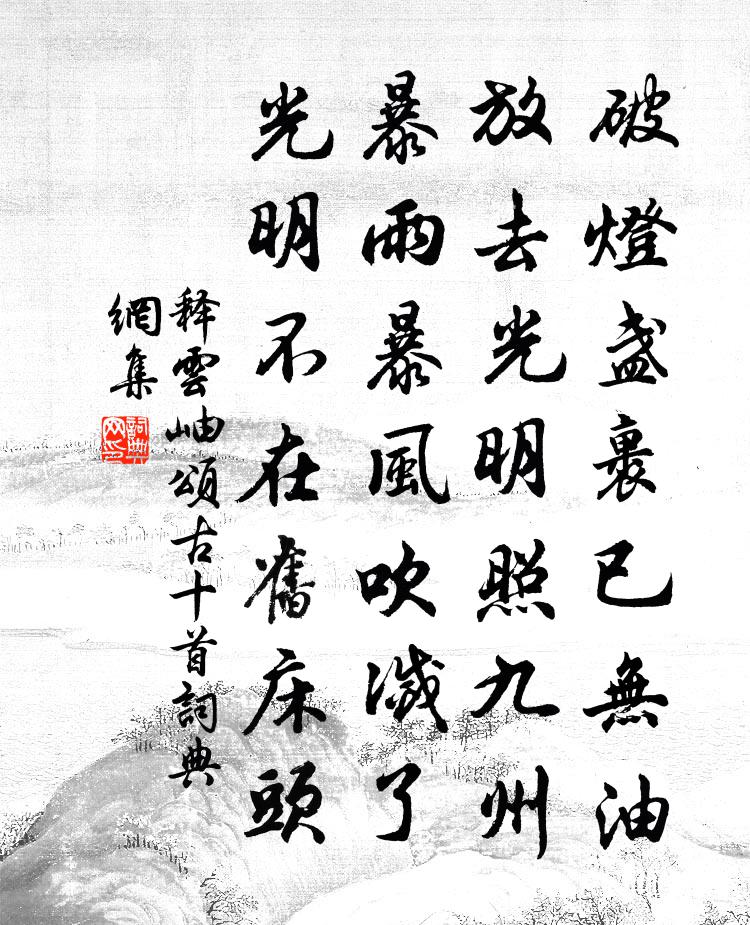 破燈盏裹已無油
放去光明照九州
暴雨暴風吹滅了
光明不在舊床頭
释雲岫頌古十首詞典
網集
詞典
网印